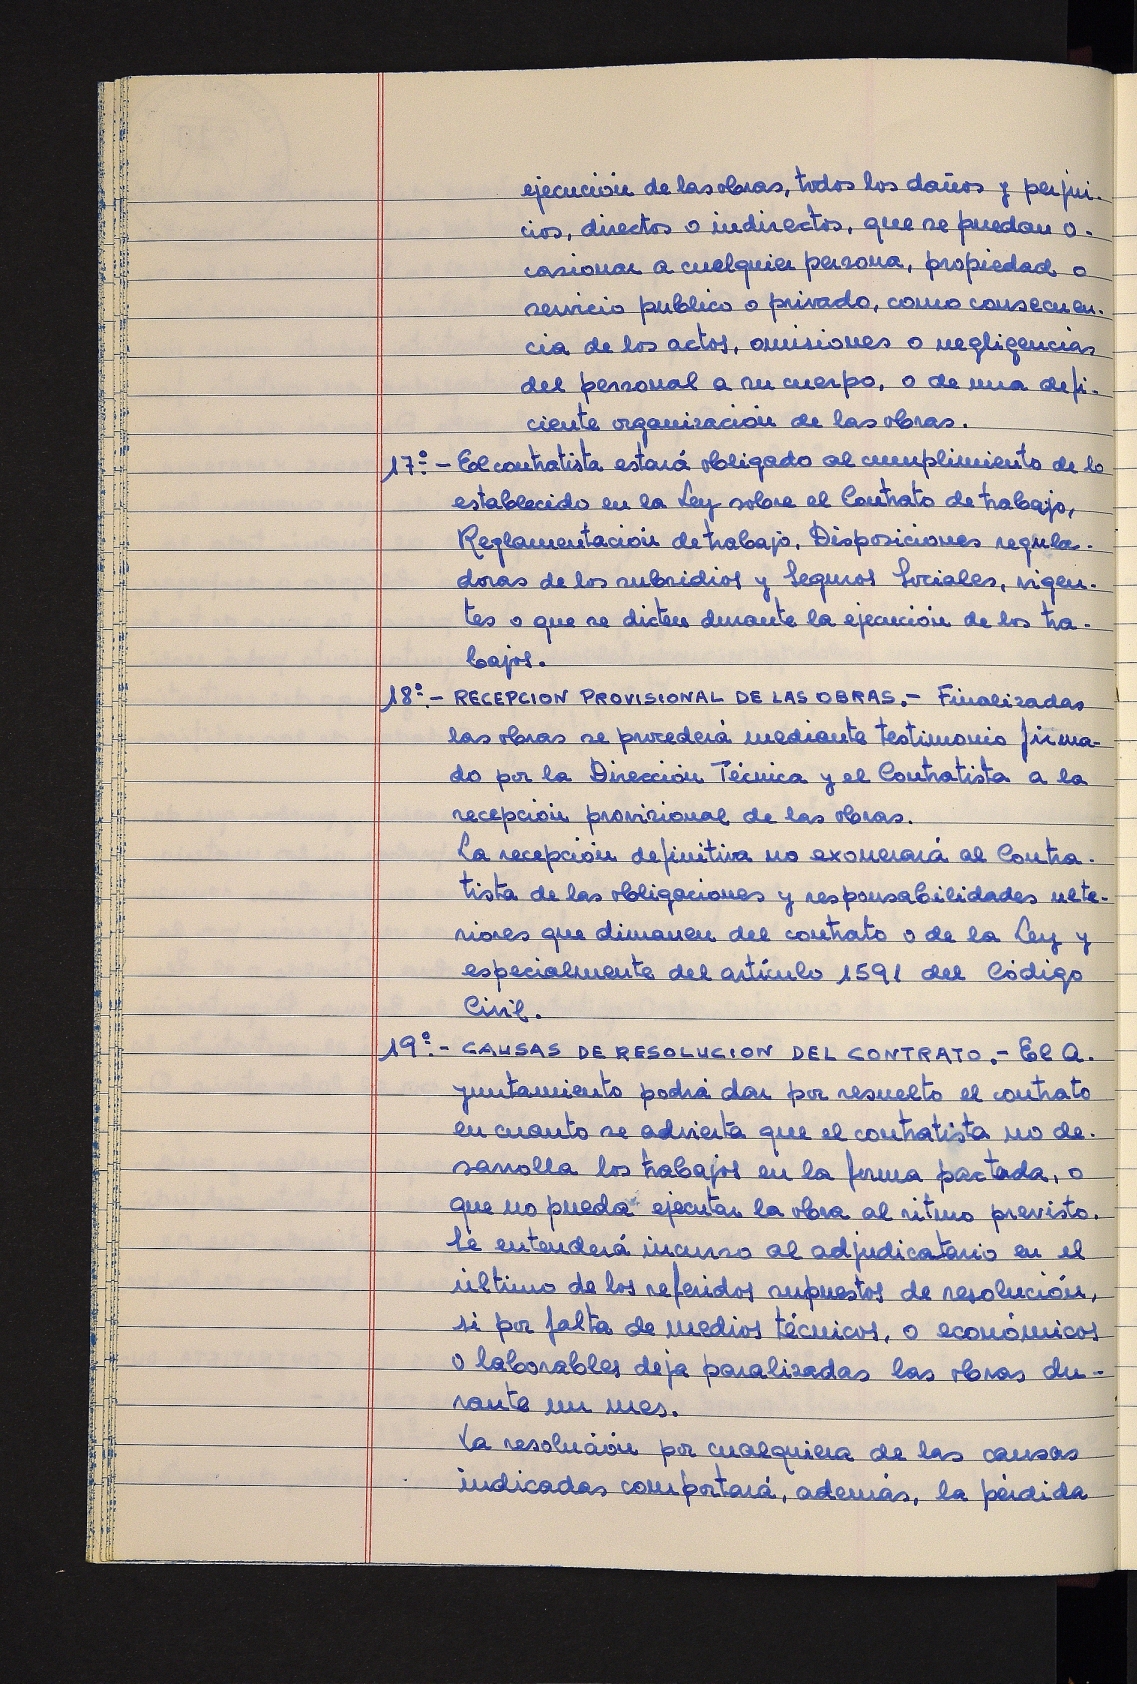 ejecución de las obras, todos los daños y perjui-
cios, directos o indirectos, que se puedan o-
casionar a cualquier persona, propiedad o
servicio publico o privado, como consecuen-
cia de los actos, omisiones o negligencias
del personal a su cuerpo, o de una defi-
ciente organización de las obras.
17º.- El contratista estará obligado al cumplimiento de lo
establecido en la Ley sobre el Contrato de trabajo,
Reglamentación de trabajo, Disposiciones regula-
doras de los subsidios y Seguros Sociales, vigen-
tes o que se dicten durante la ejecución de los tra-
bajos.
18º.- RECEPCION PROVISIONAL DE LAS OBRAS.- Finalizadas
las obras se procederá mediante testimonio firma-
do por la Dirección Técnica y el Contratista a la
recepción provisional de las obras.
La recepción definitiva no exonerará al Contra-
tista de las obligaciones y responsabilidades ulte-
riores que dimanen del contrato o de la Ley y
especialmente del artículo 1591 del Código
Civil.
19º.- CAUSAS DE RESOLUCION DEL CONTRATO.- El A-
yuntamiento podrá dar por resuelto el contrato
en cuanto se advierta que el contratista no de-
sarrolla los trabajos en la forma pactada, o
que no pueda ejecutar la obra al ritmo previsto.
Se entenderá incurso al adjudicatario en el
último de los referidos supuestos de resolución,
si por falta de medios técnicos, o económicos
o laborables deja paralizadas las obras du-
rante un mes.
La resolución por cualquiera de las causas
indicadas comportará, además, la pérdida